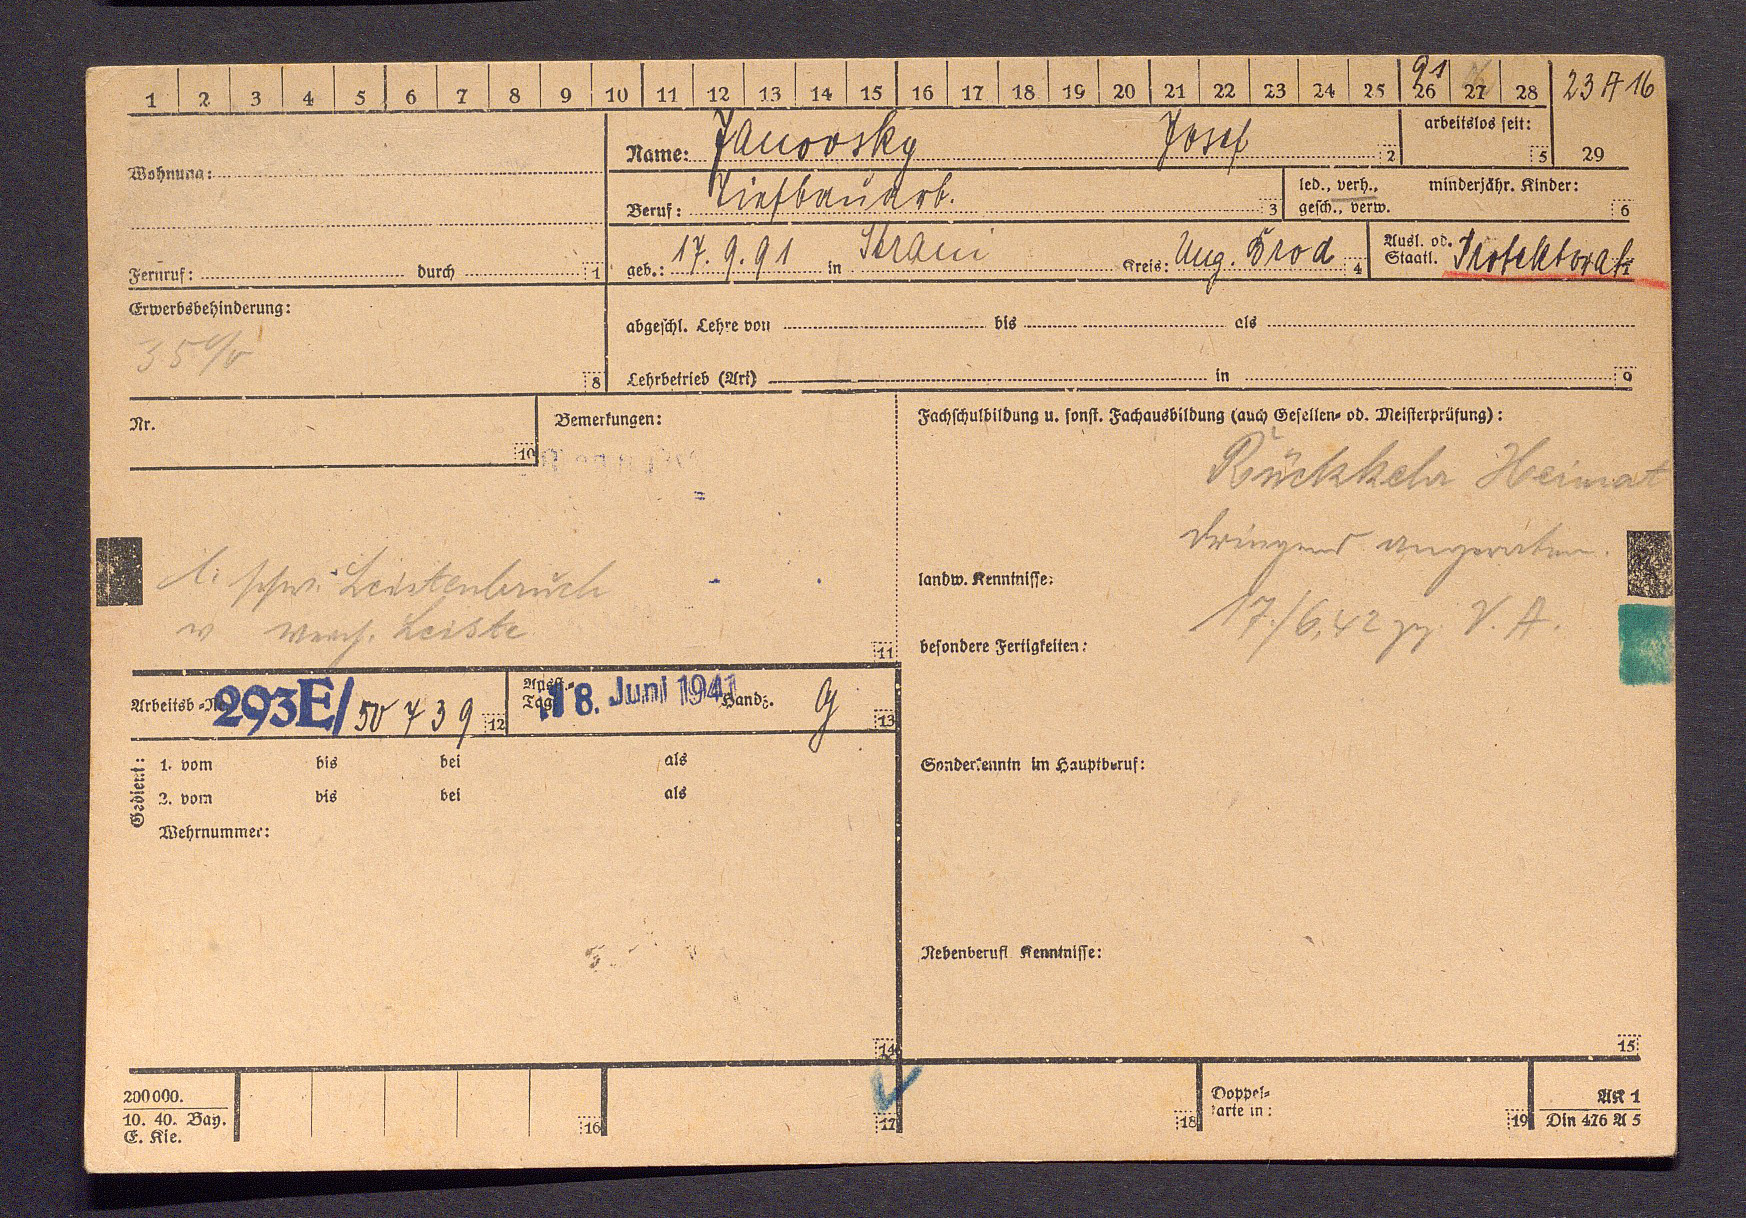 1 2 3 4 5 6 7 8 9 10 11 12 13 14 15 16 17 18 19 20 21 22 23 24 25 26 27 28
91
23 A 16
arbeitslos seit:
5 29
Wohnung:
Name: Janovsky Josef 2
Beruf: Tiefbauarb. 3
led., verh., minderjähr. Kinder:
gesch., verw. 6
Fernruf: durch 1
geb.: 17. 9. 91 in Strani Kreis: Ung. Brod 4
Ausl. od.
Staatl. Protektorat
Erwerbsbehinderung:
35% 8
abgeschl. Lehre von bis als
Lehrbetrieb (Art) in 9
Nr. 10
Bemerkungen:
l. schw. Leistenbruch
w weich. Leiste
11
Fachschulbildung u. sonst. Fachausbildung (auch Gesellen- od. Meisterprüfung):
Rückkehr Heimat
dringend angeraten.
landw. Kenntnisse:
17/6.42 V. A.
besondere Fertigkeiten:
Arbeitsb.-Nr. 293E/50739 12
Ausst.-
Tag: 18. Juni 1941 Handz. 13
Gedient:
1. vom bis bei als
2. vom bis bei als
Wehrnummer:
14
Sonderkenntn im Hauptberuf:
Nebenberufl Kenntnisse:
15
200000.
10. 40. Bay.
E. Kie.
16
17
18
Doppel-
karte in:
19
AK 1
Din 476 A 5